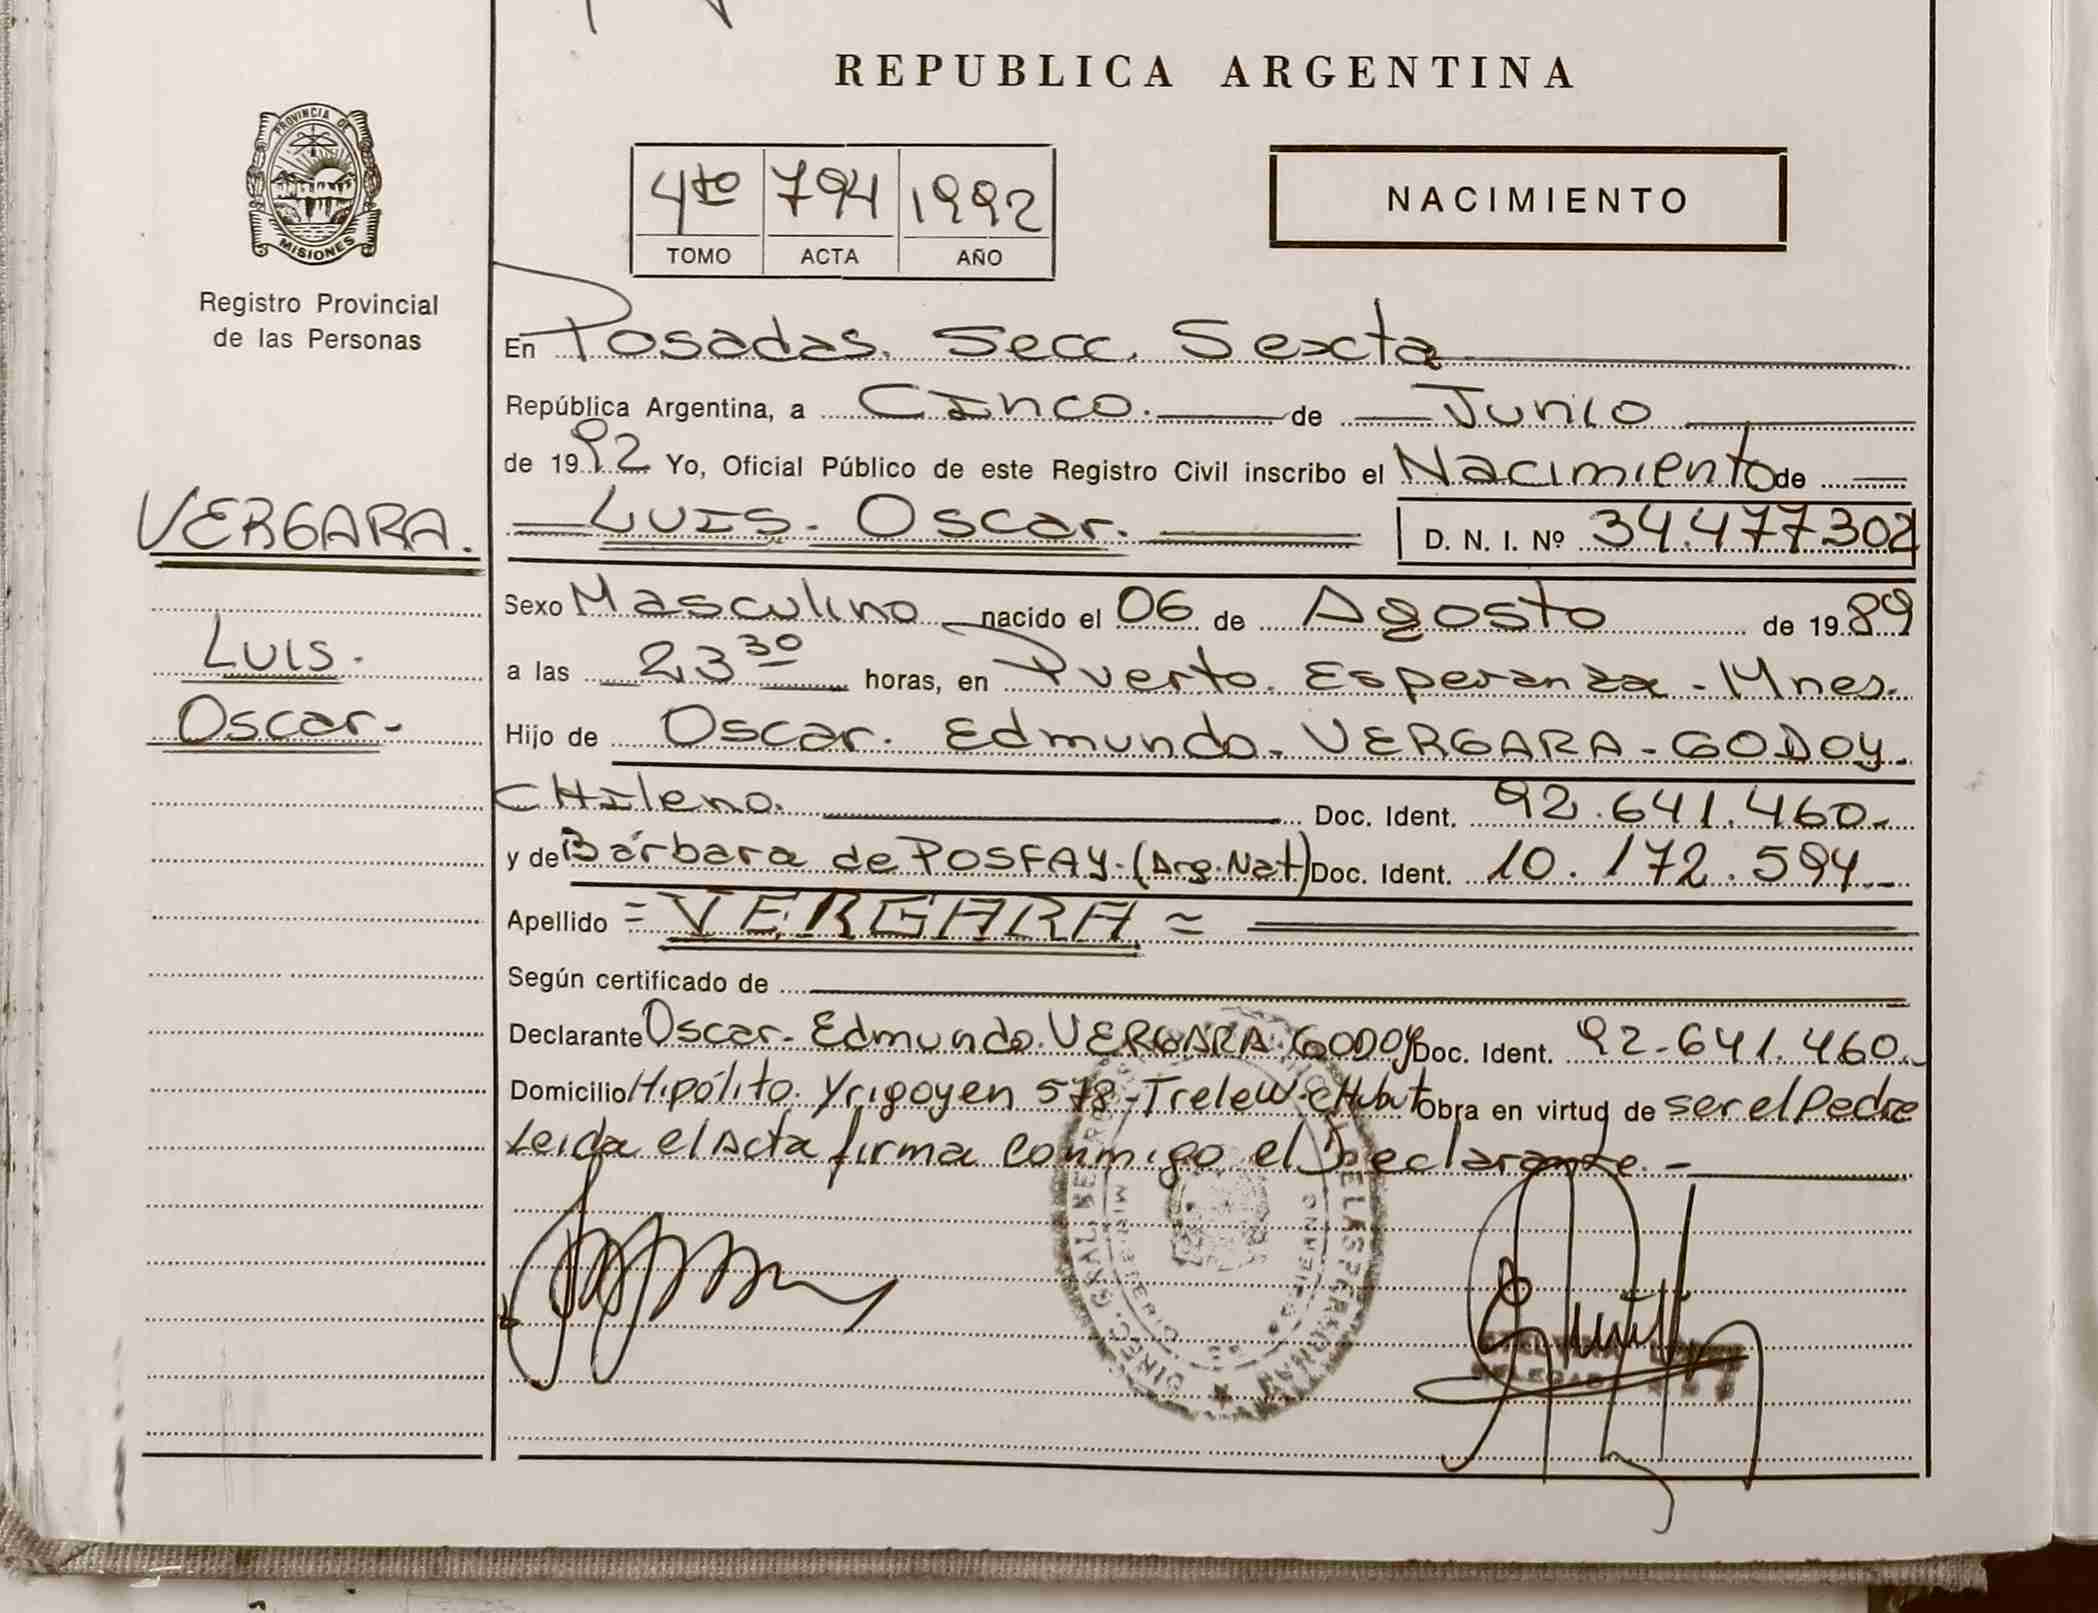 REPUBLICA ARGENTINA
PROVINCIA DE
MISIONES
Registro Provincial
de las Personas
4to 794 1992
TOMO ACTA AÑO
NACIMIENTO
En Posadas. Secc. Sexta
República Argentina, a Cinco. de Junio
de 1992 Yo, Oficial Público de este Registro Civil inscribo el Nacimiento de
VERGARA.
Luis. Oscar. D. N. I. Nº 34.477.302
Sexo Masculino nacido el 06 de Agosto de 1989
Luis.
a las 23 30 horas, en Puerto. Esperanza - Mnes.
Oscar.-
Hijo de Oscar. Edmundo. VERGARA - GODOY.
CHileno. Doc. Ident. 92.641.460.-
y de Bárbara de POSFAY. (Arg. Nat) Doc. Ident. 10.172.594.-
Apellido = VERGARA =
Según certificado de
Declarante Oscar. Edmundo. VERGARA. GODOY Doc. Ident. 92.641.460.-
Domicilio Hipólito. Yrigoyen 578 - Trelew - CHubut Obra en virtud de ser el Padre
Leida el Acta firma conmigo el Declarante. -
DIREC. GRAL. DE LAS PERSONAS
MINISTERIO GOBIERNO